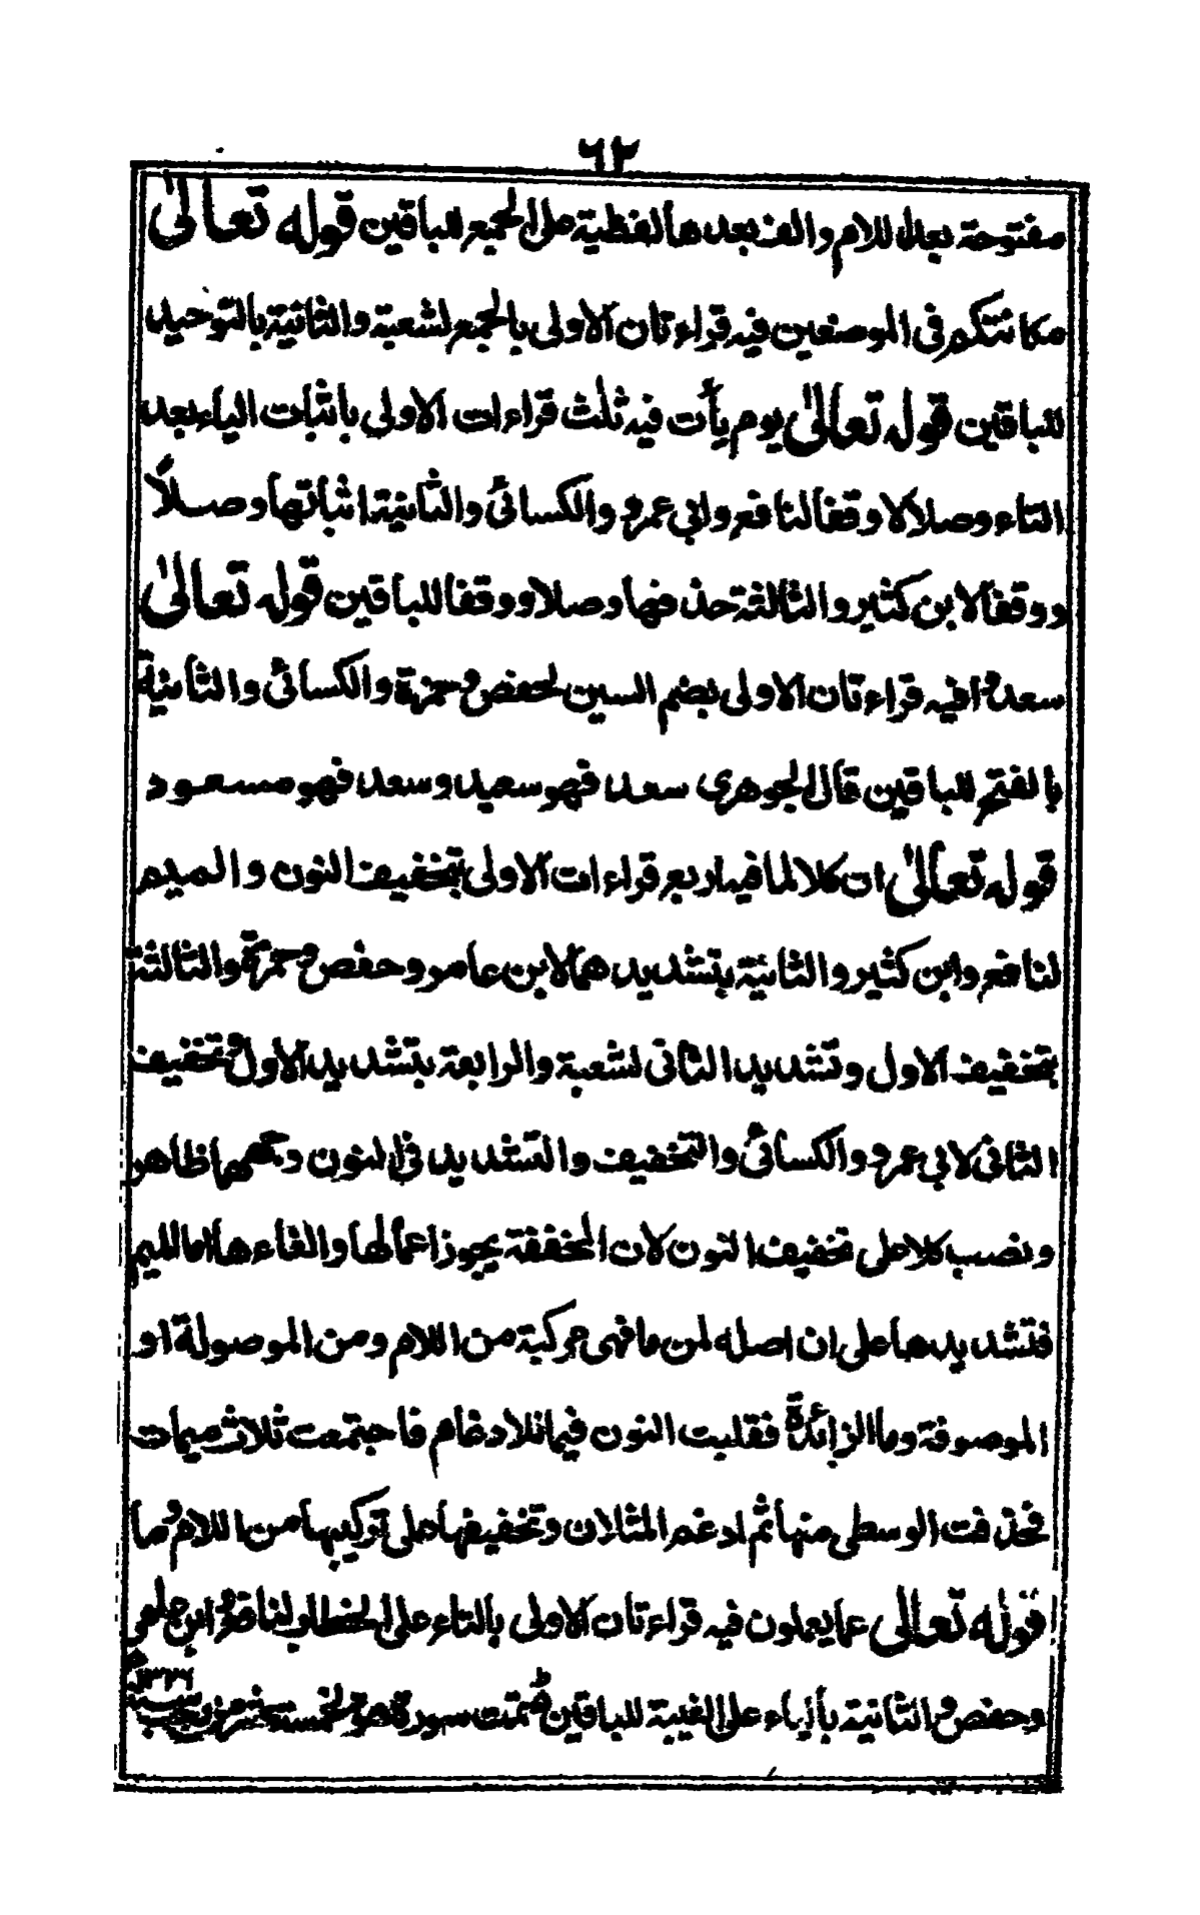 ٦٢
مفتوحة بعد اللام والف بعدها لفظية على الجمع للباقين قوله تعالىٰ
مكانتكم فى الموضعين فيه قراءتان الاولى بالجمع لشعبة والثانية بالتوحيد
للباقين قوله تعالىٰ يوم يأت فيه ثلث قراءات الاولى باثبات الياء بعد
التاء وصلا لا وقفا لنافع وابي عمرو والكسائي والثانية اثباتها وصلاً
ووقفا لابن كثير والثالثة حذفها وصلا ووقفا للباقين قوله تعالىٰ
سعدوا فيه قراءتان الاولى بضم السين لحفص وحمزة والكسائي والثانية
بالفتح للباقين قال الجوهري سعد فهو سعيد وسعد فهو مسعود
قوله تعالىٰ ان كلا لما فيه اربع قراءات الاولى بتخفيف النون والميم
لنافع وابن كثير والثانية بتشديدهما لابن عامر وحفص وحمزة والثالثة
بتخفيف الاول وتشديد الثانى لشعبة والرابعة بتشديد الاول وتخفيف
الثانى لابي عمرو والكسائي والتخفيف والتشديد في النون وجههما ظاهر
ونصب كلا على تخفيف النون لان المخففة يجوز اعمالها والغاءها اما الميم
فتشديدها على ان اصله لمن ما فهى مركبة من اللام ومن الموصولة او
الموصوفة وما الزائدة فقلبت النون فيما للادغام فاجتمعت ثلاث ميمات
فحذفت الوسطى منها ثم ادغم المثلان وتخفيفها على تركيبها من اللام وما
قوله تعالى عما يعملون فيه قراءتان الاولى بالتاء على الخطاب لنافع وابن عامر
وحفص والثانية بالياء على الغيبة للباقين تمت سورة هود